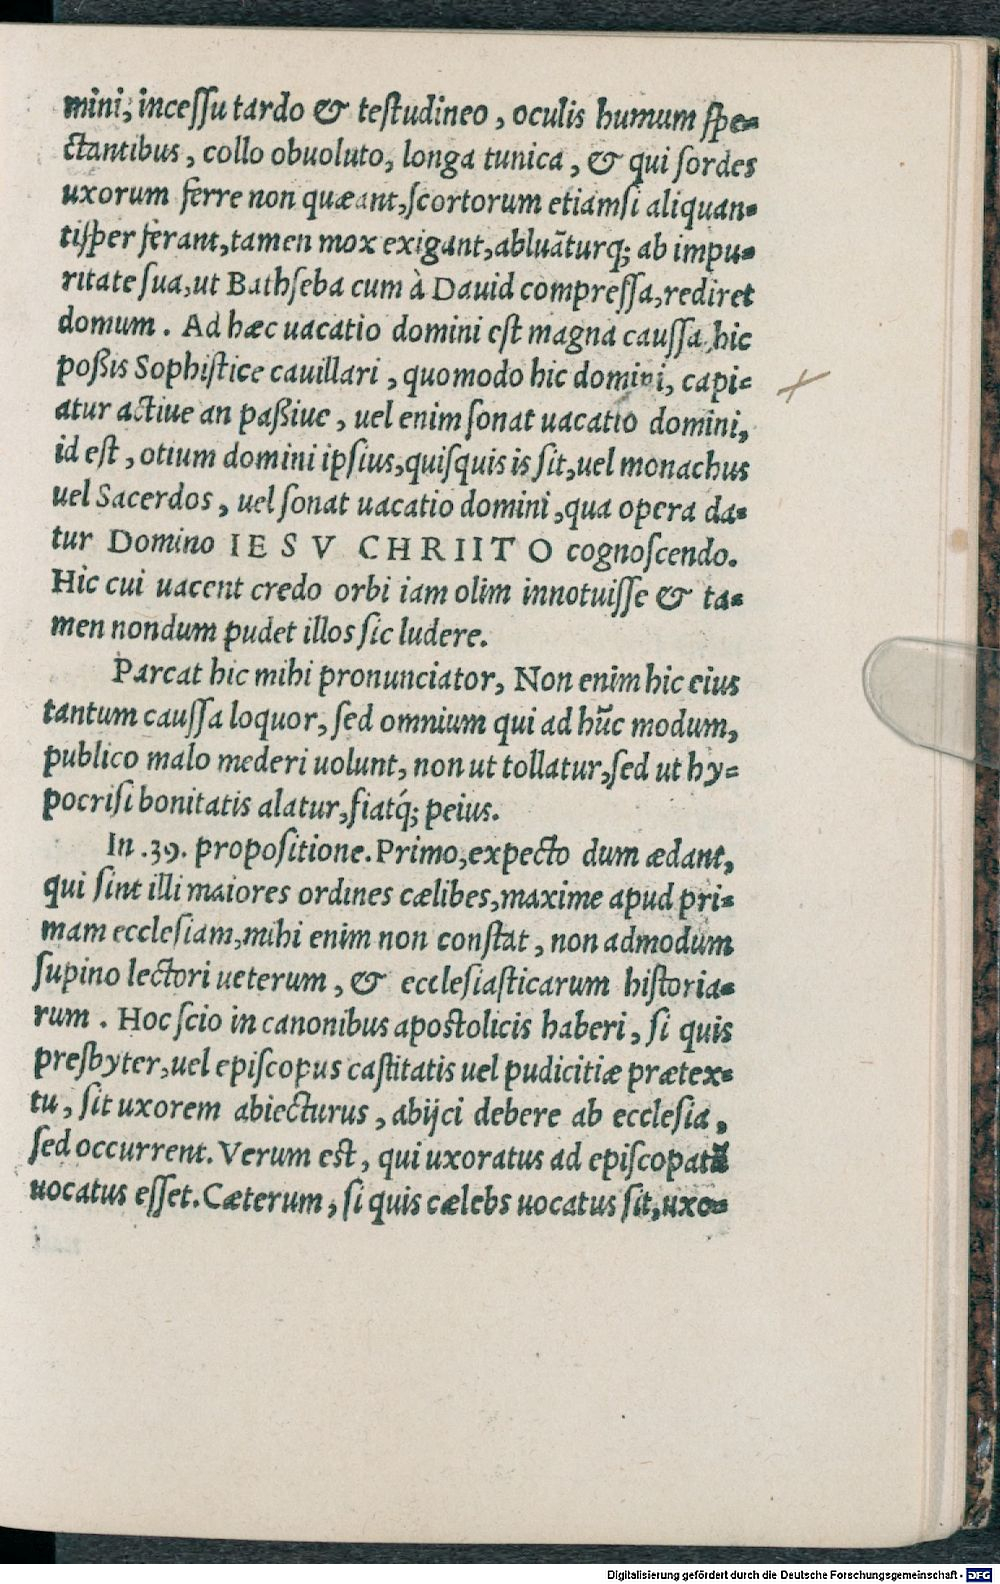 mini, incessu tardo & testudineo, oculis humum spe=
ctantibus, collo obuoluto, longa tunica, & qui sordes
uxorum ferre non quæant, scortorum etiamsi aliquan=
tisper ferant, tamen mox exigant, abluāturq; ab impu=
ritate sua, ut Bathseba cum à Dauid compressa, rediret
domum. Ad hæc uacatio domini est magna caussa, hic
poßis Sophistice cauillari, quomodo hic domini, capi=
atur actiue an paßiue, uel enim sonat uacatio domini,
id est, otium domini ipsius, quisquis is sit, uel monachus
uel Sacerdos, uel sonat uacatio domini, qua opera da=
tur Domino IESV CHRIITO cognoscendo.
Hic cui uacent credo orbi iam olim innotuisse & ta=
men nondum pudet illos sic ludere.
Parcat hic mihi pronunciator, Non enim hic eius
tantum caussa loquor, sed omnium qui ad hūc modum,
publico malo mederi uolunt, non ut tollatur, sed ut hy=
pocrisi bonitatis alatur, fiatq́; peius.
In .39. propositione. Primo, expecto dum ædant,
qui sint illi maiores ordines cælibes, maxime apud pri=
mam ecclesiam, mihi enim non constat, non admodum
supino lectori ueterum, & ecclesiasticarum historia=
rum. Hoc scio in canonibus apostolicis haberi, si quis
presbyter, uel episcopus castitatis uel pudicitiæ prætex=
tu, sit uxorem abiecturus, abijci debere ab ecclesia,
sed occurrent. Verum est, qui uxoratus ad episcopatū
uocatus esset. Cæterum, si quis cælebs uocatus sit, uxo=
Digitalisierung gefördert durch die Deutsche Forschungsgemeinschaft - DFG